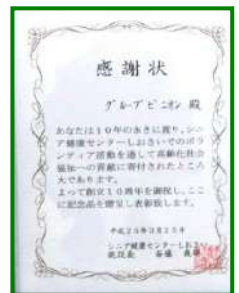 感謝状
グループピニオン 殿
あなたは10年の永きに渡り、シニ
ア健康センターしおさいでのボラ
ンティア活動を通して高齢化社会
福祉への貢献に寄付されたところ
大であります。
よって創立10周年を謝祝し、ここ
に記念品を贈呈し表彰致します。
平成25年3月25日
シニア健康センターしおさい
施設長